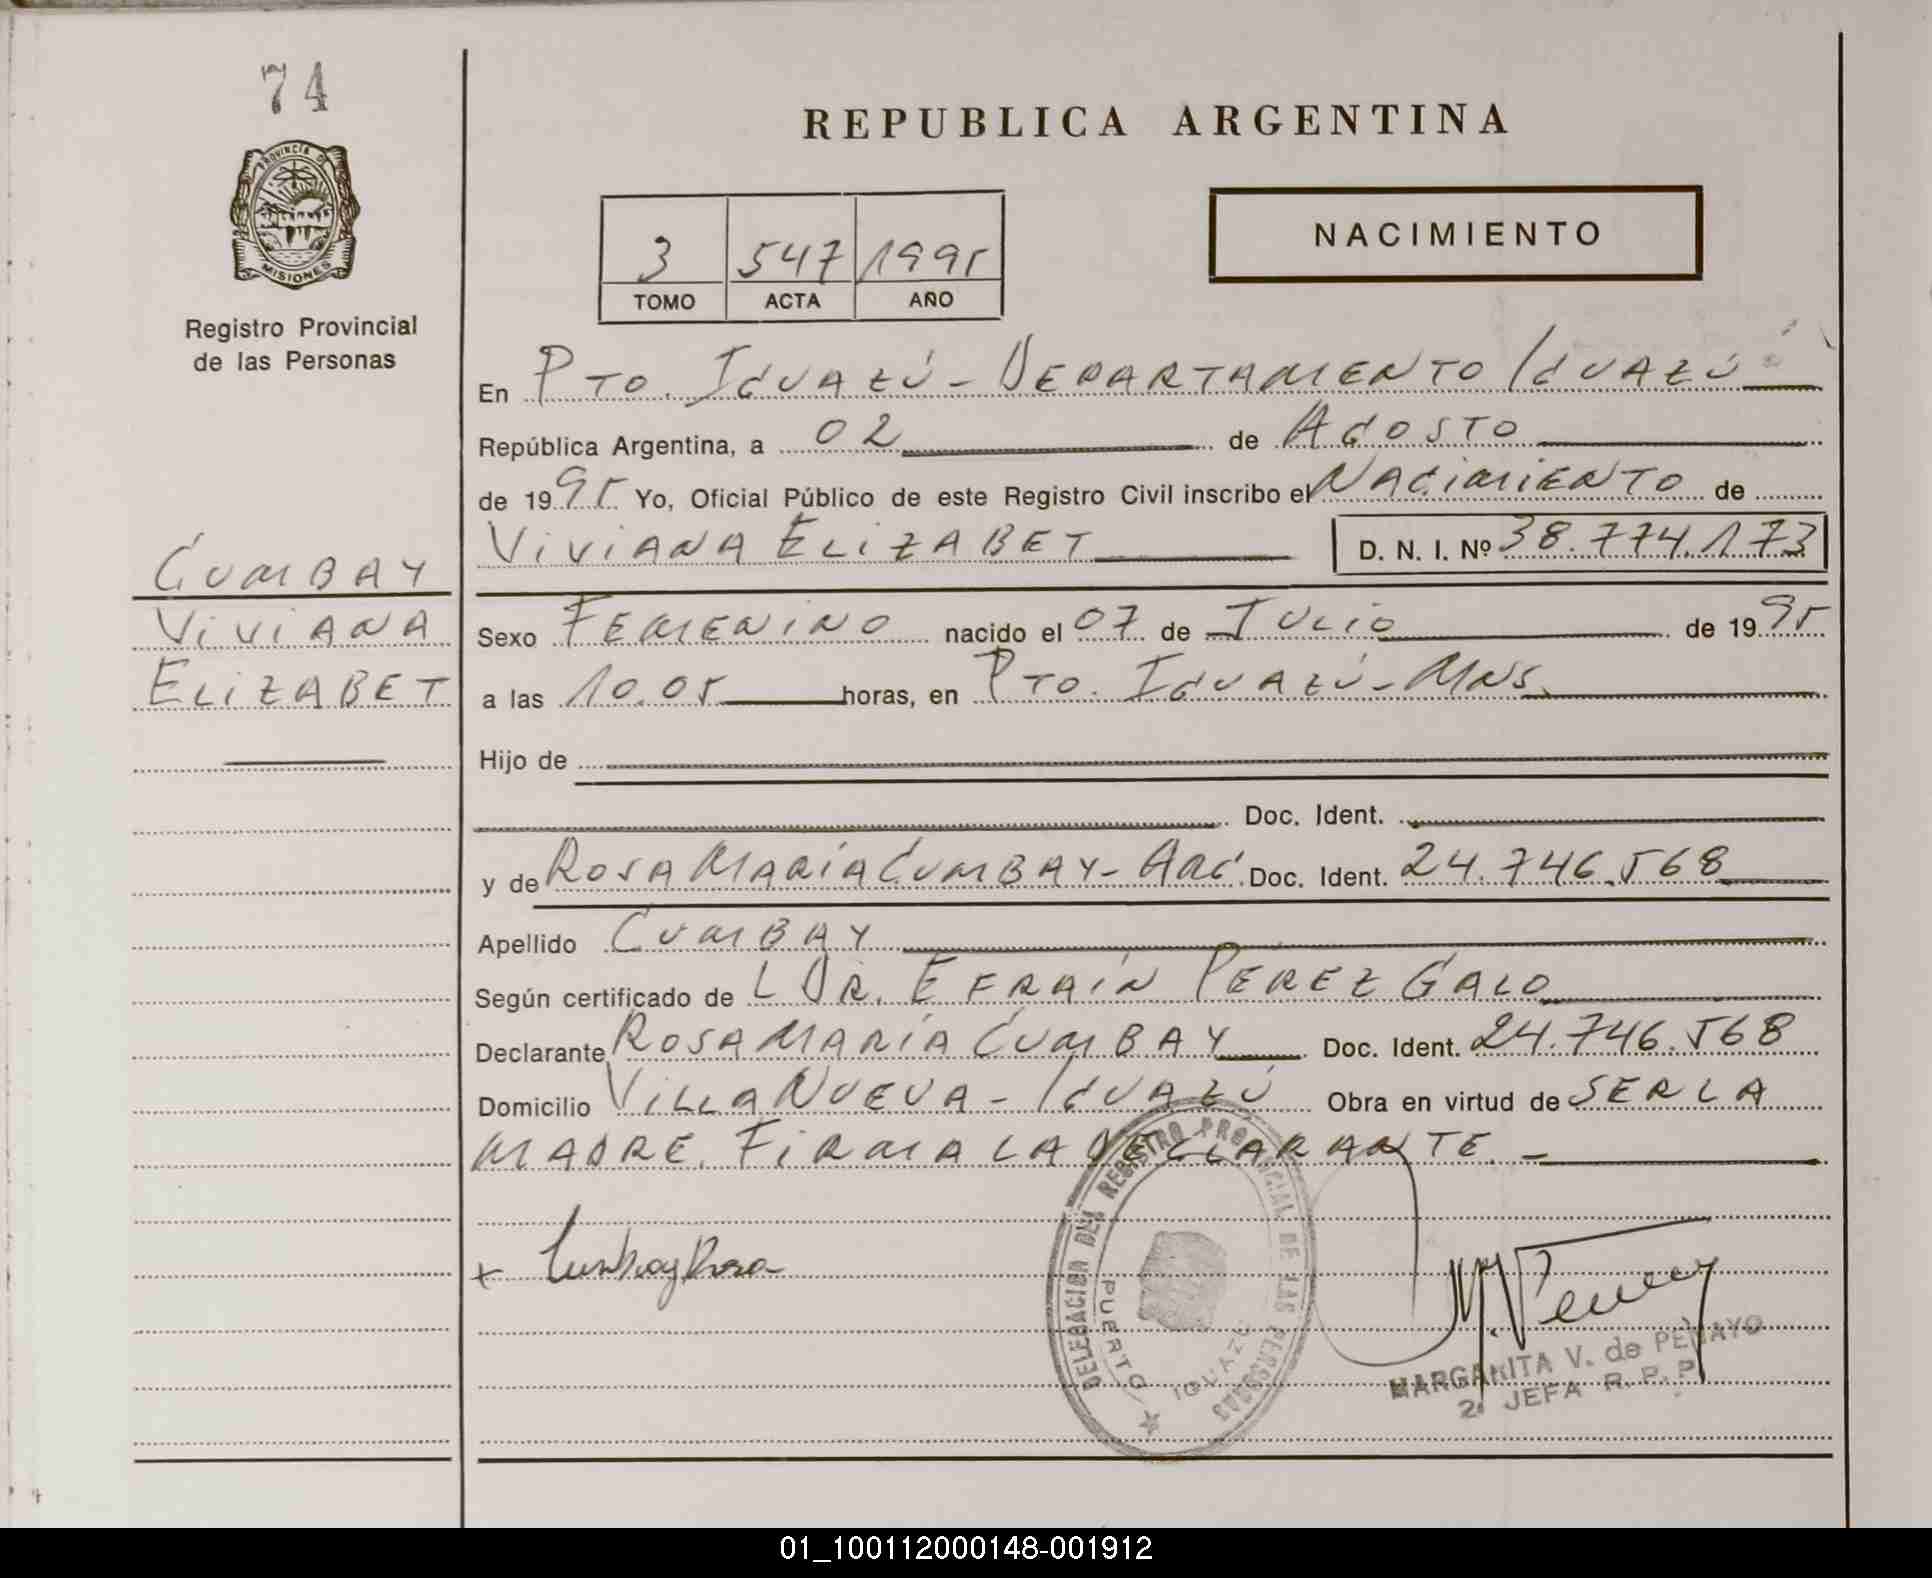 74
PROVINCIA DE
MISIONES
Registro Provincial
de las Personas
CUMBAY
VIVIANA
ELIZABET
REPUBLICA ARGENTINA
3 547 1995
TOMO ACTA AÑO
NACIMIENTO
En PTO. IGUAZÚ - DEPARTAMENTO IGUAZÚ
República Argentina, a 02 de AGOSTO
de 1995 Yo, Oficial Público de este Registro Civil inscribo el NACIMIENTO de
VIVIANA ELIZABET D. N. I. Nº 38.774.173
Sexo FEMENINO nacido el 07 de JULIO de 1995
a las 10.05 horas, en PTO. IGUAZÚ - MNS.
Hijo de
Doc. Ident.
y de ROSA MARÍA CUMBAY - ARG. Doc. Ident. 24.746.568
Apellido CUMBAY
Según certificado de L DR. EFRAÍN PEREZ GALO
Declarante ROSA MARÍA CUMBAY Doc. Ident. 24.746.568
Domicilio VILLA NUEVA - IGUAZÚ Obra en virtud de SER LA
MADRE. FIRMA LA DECLARANTE. -
x Cumbay Rosa
DELEGACION DEL REGISTRO PROVINCIAL DE LAS PERSONAS
PUERTO IGUAZU
MARGARITA V. de PENAYO
2ª JEFA R. P. P.
01_100112000148-001912